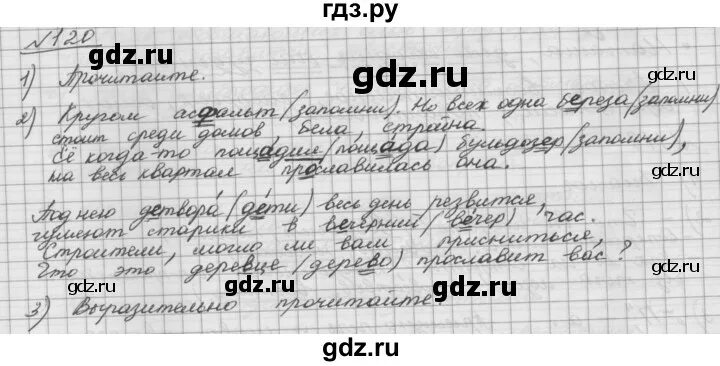 гдз.ру
№120
gdz.ru gdz.ru
1) Прочитайте.
2) Кругом асфальт (запомни). Но всех одна береза (запомни)
стоит среди домов, бела, стройна.
Её когда-то пощадил (пощада) бульдозер (запомни),
на весь квартал прославилась она.
gdz.ru gdz.ru
Под нею детвора́ (де́ти) весь день резвится,
гуляют старики в вечерний (ве́чер) час.
Строители, могло ли вам присниться,
Что это деревце (дерево) прославит вас?
gdz.ru gdz.ru
3) Выразительно прочитайте.
gdz.ru